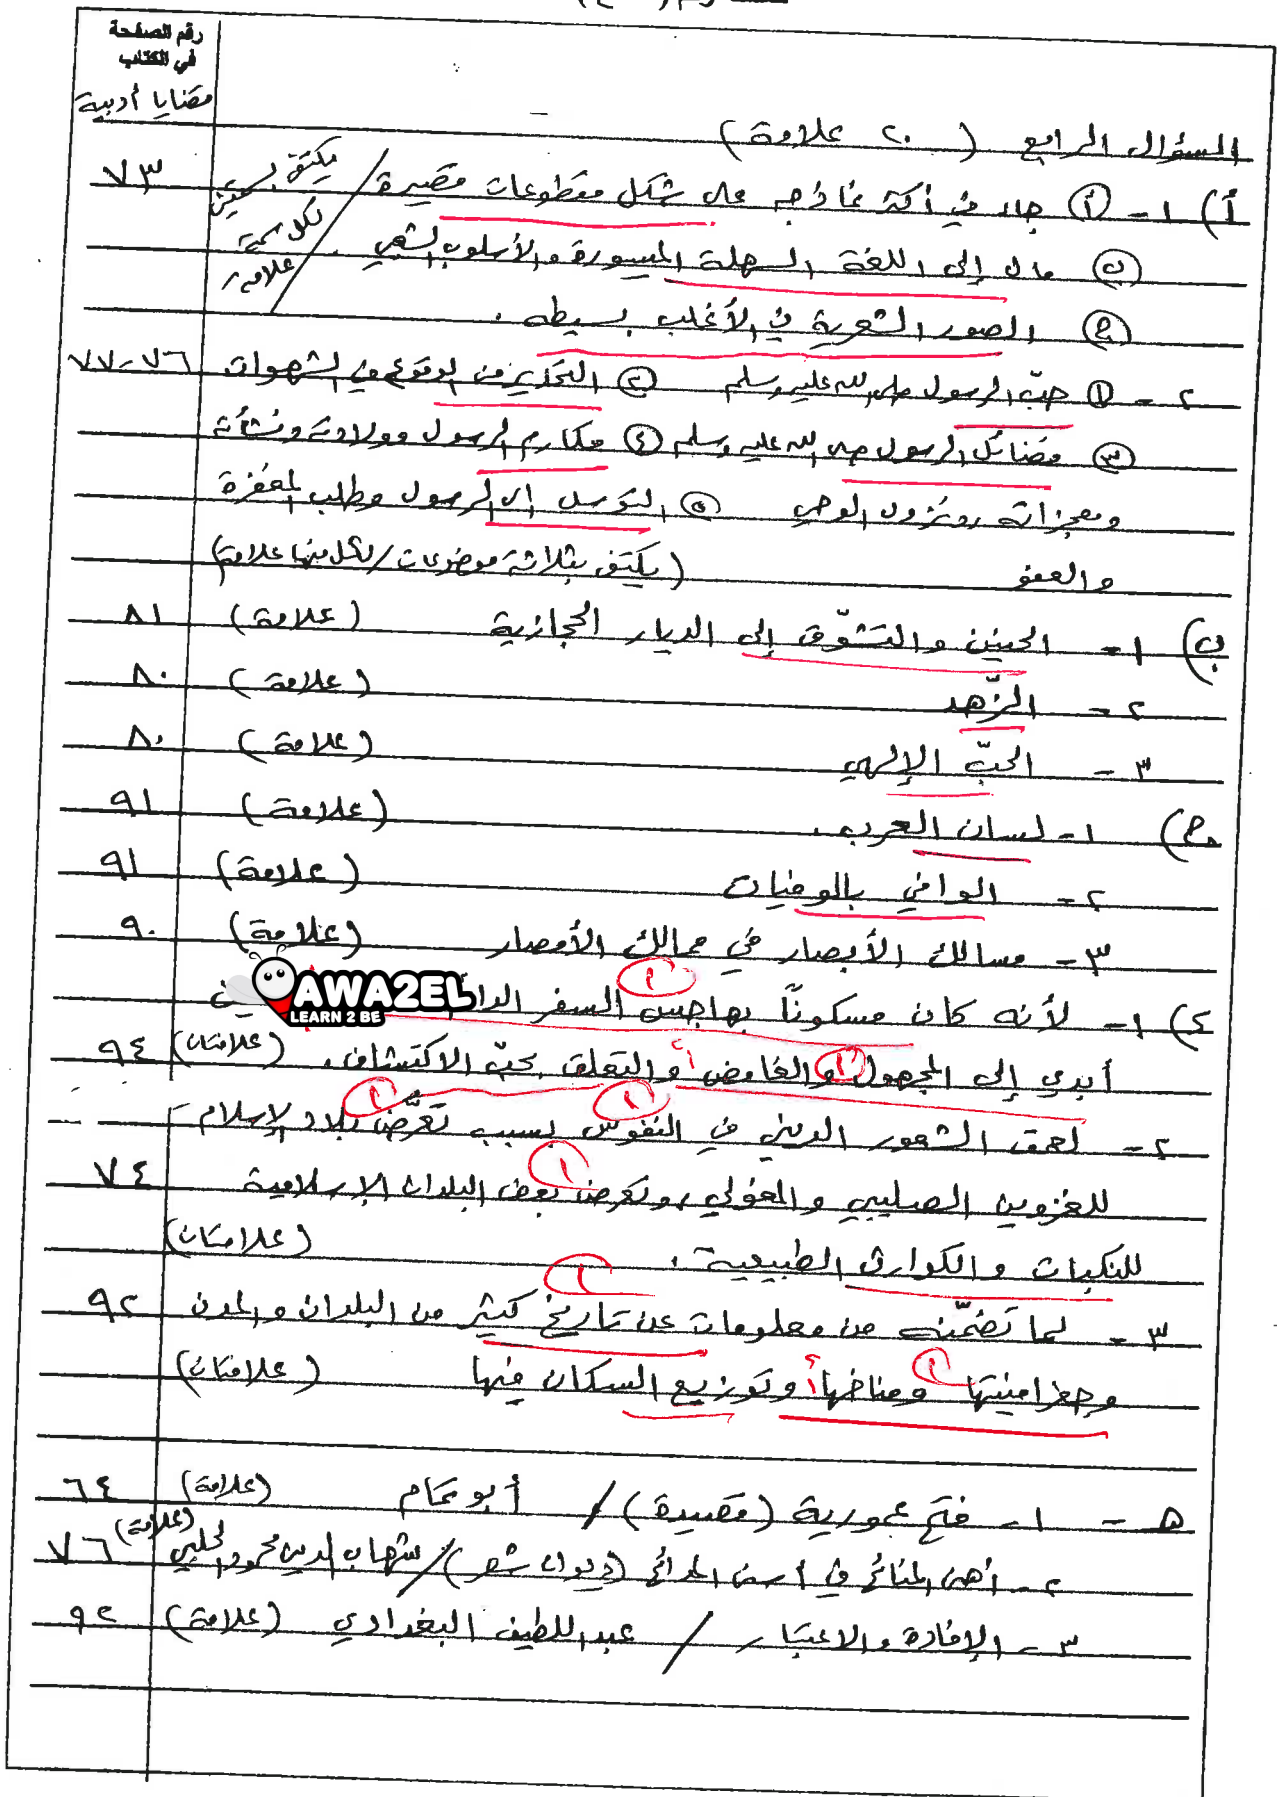 رقم الصفحة
في الكتاب
قضايا أدبية
السؤال الرابع ( ٢٠ علامة )
أ) ١ - أ جاء في أكثر نماذجه على شكل مقطوعات قصيرة / يكتفى بسمتين ٧٣
ب مال إلى اللغة السهلة الميسورة والأسلوب الشعبي . لكل سمة علامة
ج الصور الشعرية في الأغلب بسيطة .
٢ - ١ حبّ الرسول صلى الله عليه وسلم ٢ التحذير من الوقوع في الشهوات ٧٦-٧٧
٣ فضائل الرسول صلى الله عليه وسلم ٤ مكارم الرسول وولادته ونشأته
ومعجزاته ونزول الوحي ٥ التوسل إلى الرسول وطلب المغفرة
والعفو ( يكتفى بثلاثة موضوعات / لكل منها علامة )
ب) ١ - الحنين والتشوّق إلى الديار الحجازية ( علامة ) ٨١
٢ - الزّهد ( علامة ) ٨٠
٣ - الحبّ الإلهي ( علامة ) ٨٠
ج) ١ - لسان العرب . ( علامة ) ٩١
٢ - الوافي بالوفيات ( علامة ) ٩١
٣ - مسالك الأبصار في ممالك الأمصار ( علامة ) ٩٠
AWA2EL
LEARN 2 BE
د) ١ - لأنه كان مسكونًا بهاجس السفر ١
أبدي إلى المجهول ١ والغامض ١ والتعلق بحبّ الاكتشاف . ( علامتان ) ٩٤
٢ - لعمق الشعور الديني في النفوس ١ بسبب تعرّض ١ بلاد الإسلام
للغزوين الصليبي والمغولي ، وتعرض ١ بعض البلدان الإسلامية ٧٤
للنكبات والكوارث الطبيعية . ( علامتان )
٣ - لما تضمّنه من معلومات عن تاريخ ١ كثير من البلدان والمدن ٩٢
وجغرافيتها ١ ومناخها وتوزيع السكان فيها ( علامتان )
هـ - ١ - فتح عمورية ( قصيدة ) / أبو تمام ( علامة ) ٦٤
٢ - أهنى المنائح في أسنى المدائح ( ديوان شعر ) / شهاب الدين محمود الحلبي ( علامة ) ٧٦
٣ - الإفادة والاعتبار / عبد اللطيف البغدادي ( علامة ) ٩٢